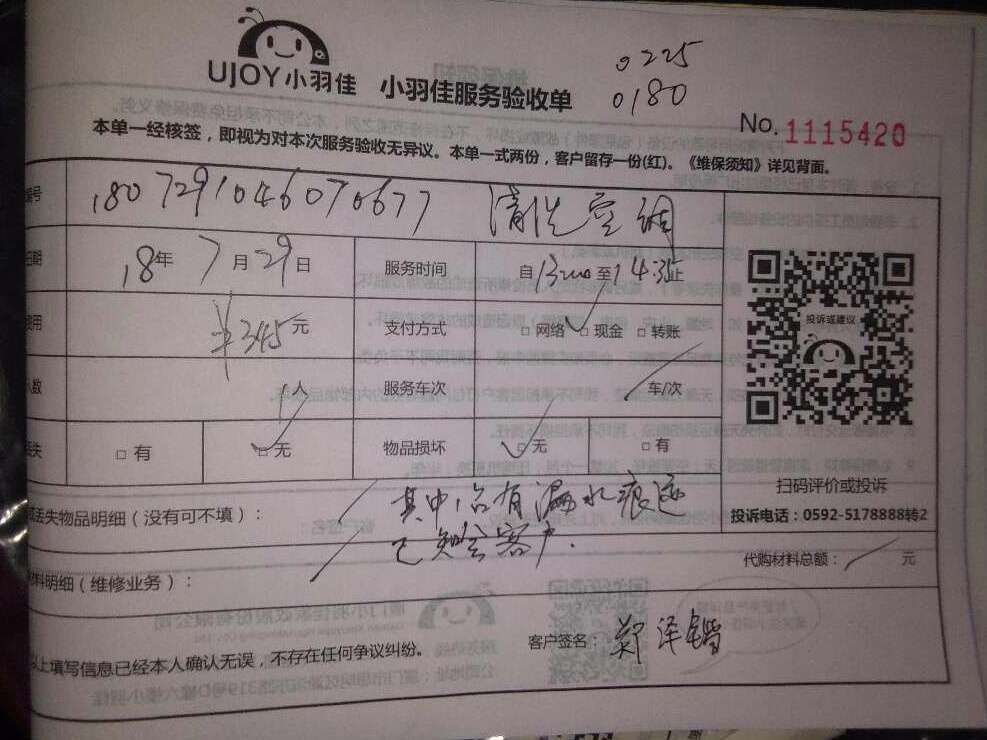 UJOY小羽佳 小羽佳服务验收单
0225
0180
No. 1115420
本单一经核签，即视为对本次服务验收无异议。本单一式两份，客户留存一份(红)。《维保须知》详见背面。
编号 1807291046070677 清洗空调
日期 18年7月29日 服务时间 自13:00至14:35止
费用 ¥345元 支付方式 □网络 □现金 □转账
人数 人 服务车次 车/次
丢失 □有 □无 物品损坏 □无 □有
投诉或建议
扫码评价或投诉
投诉电话：0592-5178888转2
或丢失物品明细（没有可不填）： 其中一台有漏水痕迹
已知会客户.
材料明细（维修业务）： 代购材料总额： 元
以上填写信息已经本人确认无误，不存在任何争议纠纷。 客户签名： 郑泽